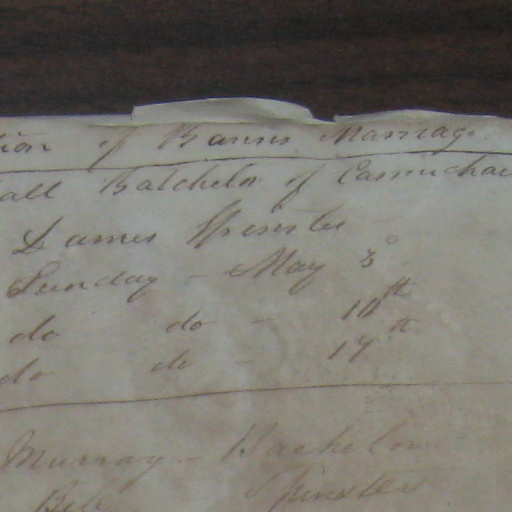 tion of Banns Marriage
all Batchelor of Carmichael
James Spinster
Sunday - May 3°
do do - 10th
do do - 17th
Murray - Bachelor
Bell Spinster